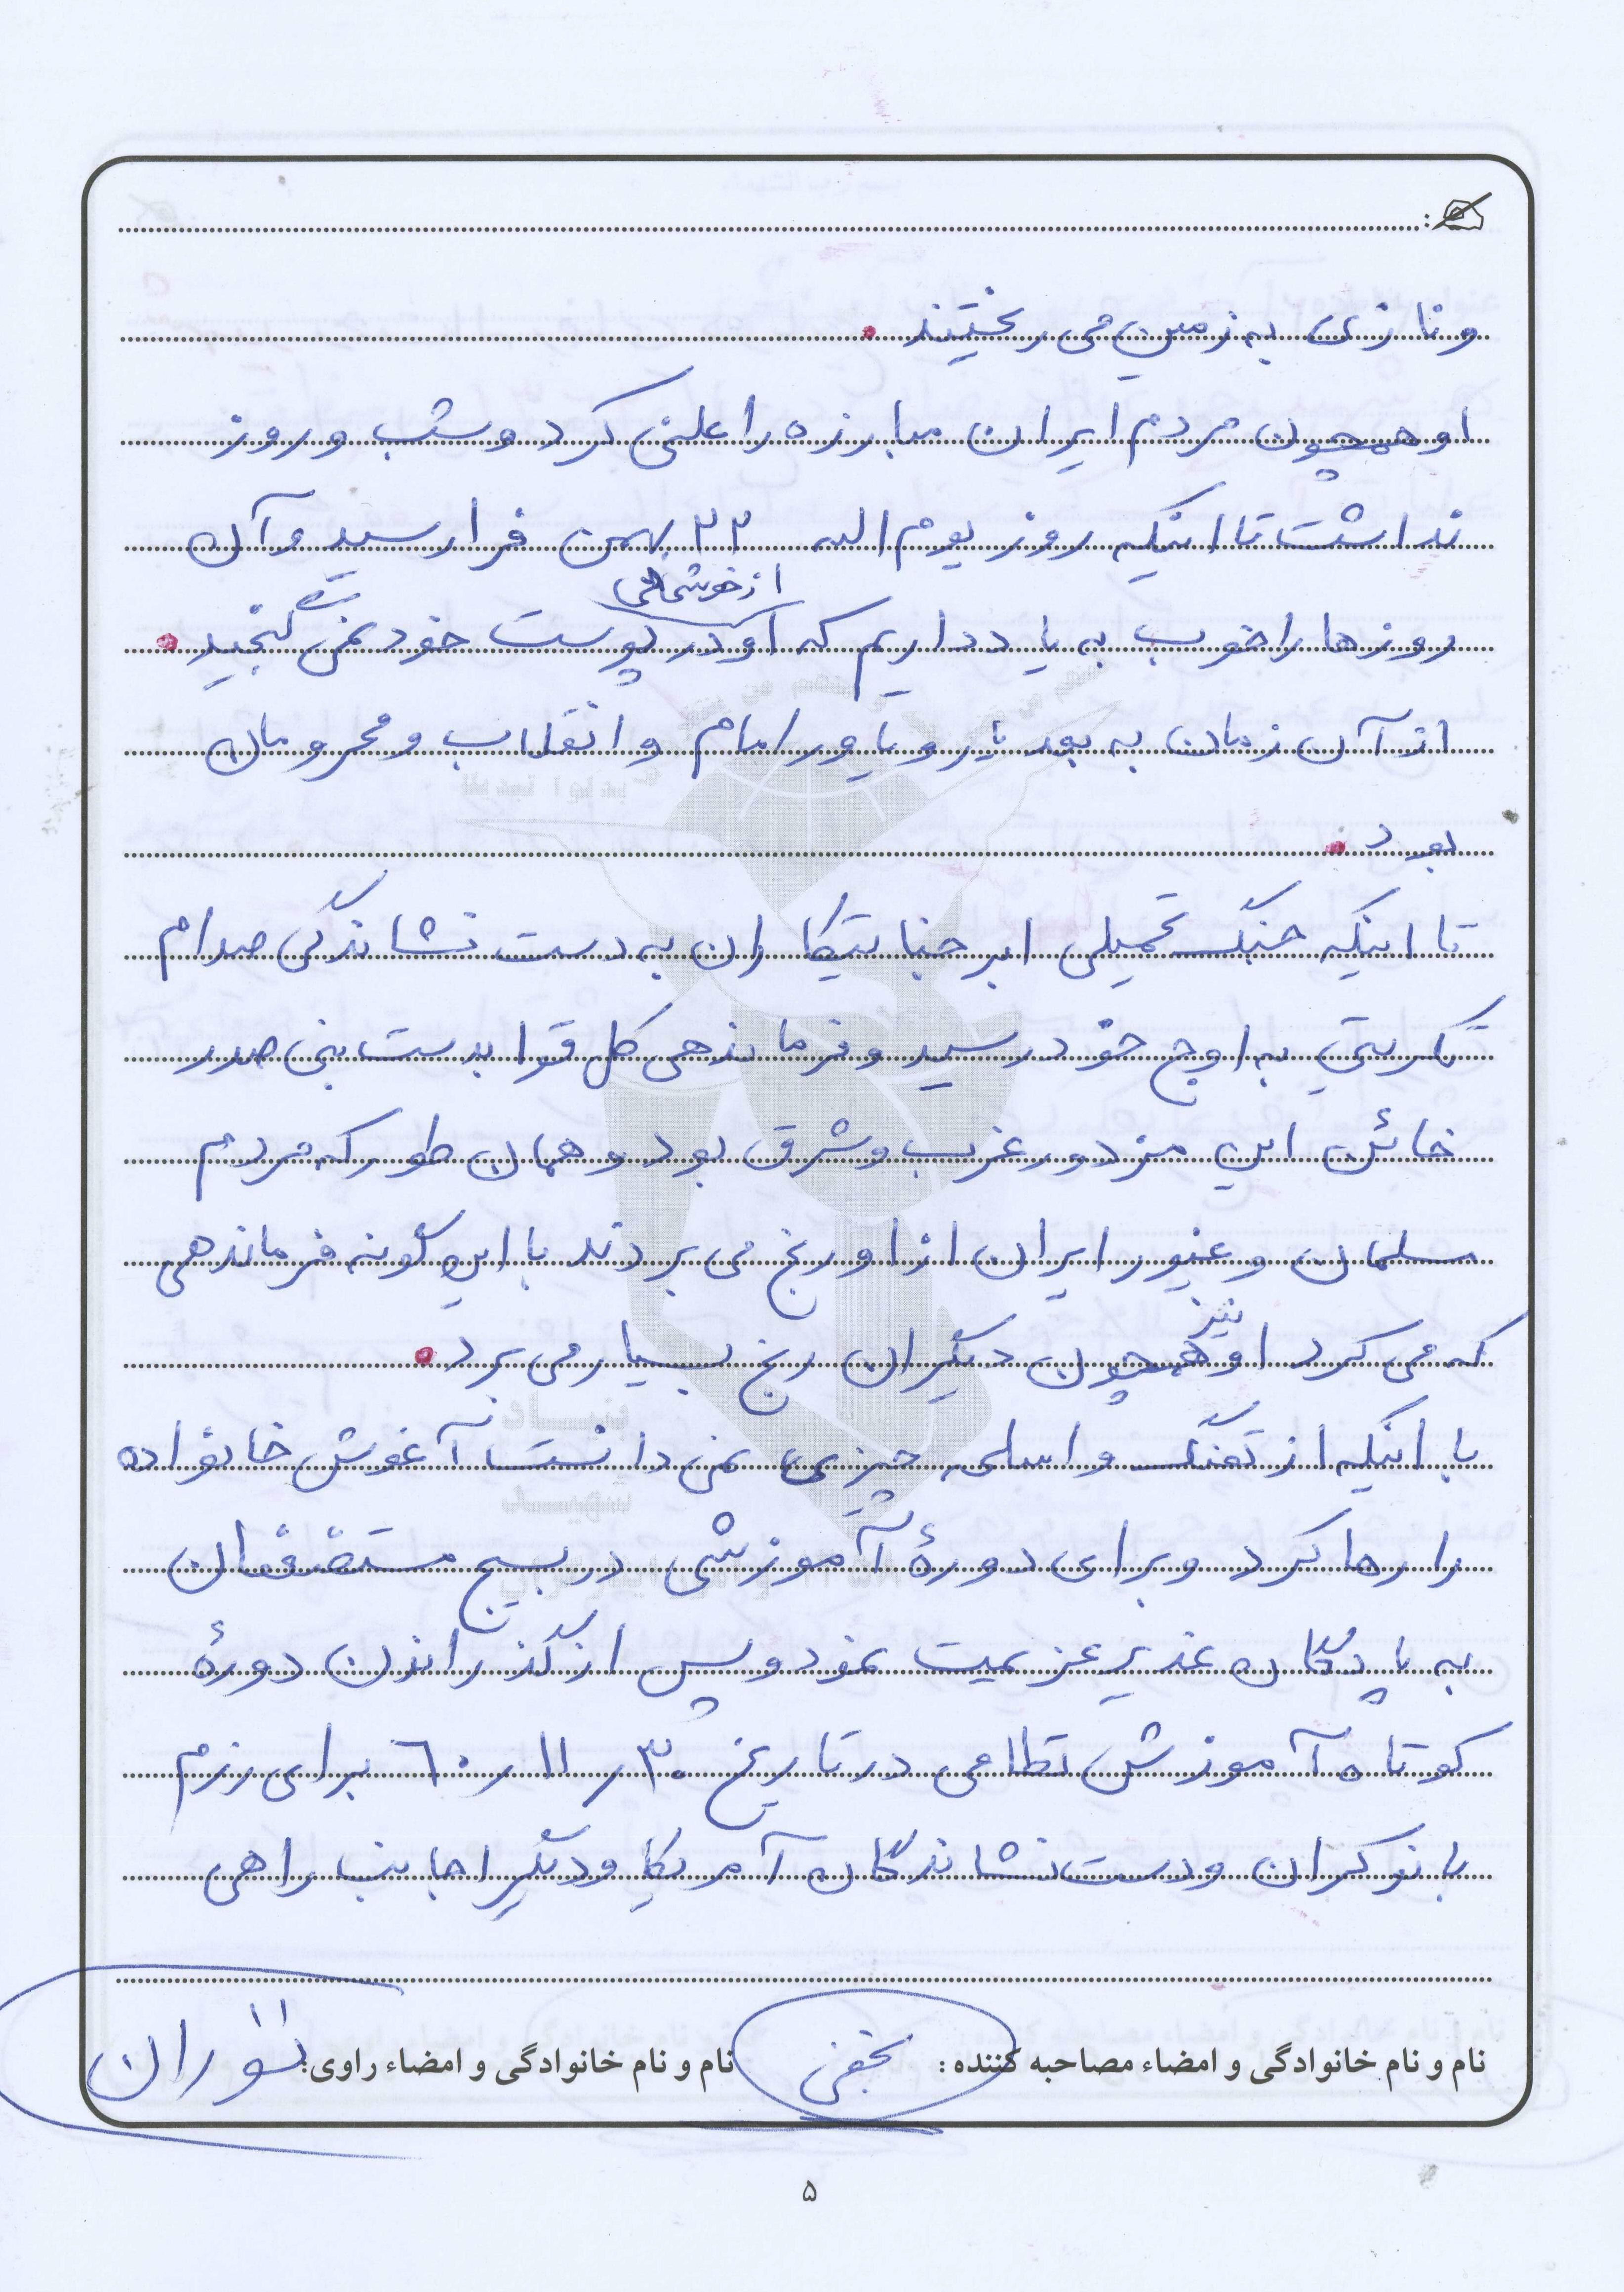 و نازی به زمین می ریختند .
او همچون مردم ایران مبارزه را علنی کرد و شب و روز
نداشت تا اینکه روز یوم الله ۲۲ بهمن فرا رسید و آن
از خوشحالی
روزها را خوب به یاد داریم که او در پوست خود نمی گنجید .
از آن زمان به بعد یار و یاور امام و انقلاب و محرومان
بود .
تا اینکه جنگ تحمیلی ابر جنایتکاران به دست نشاندگی صدام
تکریتی به اوج خود رسید و فرماندهی کل قوا بدست بنی صدر
خائن این مزدور غرب و شرق بود و همان طور که مردم
مسلمان و غیور ایران از او رنج می بردند با این گونه فرماندهی
نیز
که می کرد او همچون دیگران رنج بسیار می برد .
با اینکه از تفنگ و اسلحه چیزی نمی دانست آغوش خانواده
را رها کرد و برای دورهٔ آموزشی در بسیج مستضعفان
به پادگان غدیر عزیمت نمود و پس از گذراندن دورهٔ
کوتاه آموزش نظامی در تاریخ ۳۰ ر ۱۱ ر ۶۰ برای رزم
با نوکران و دست نشاندگان آمریکا و دیگر اجانب راهی
نام و نام خانوادگی و امضاء مصاحبه کننده : نجفی نام و نام خانوادگی و امضاء راوی:
۵